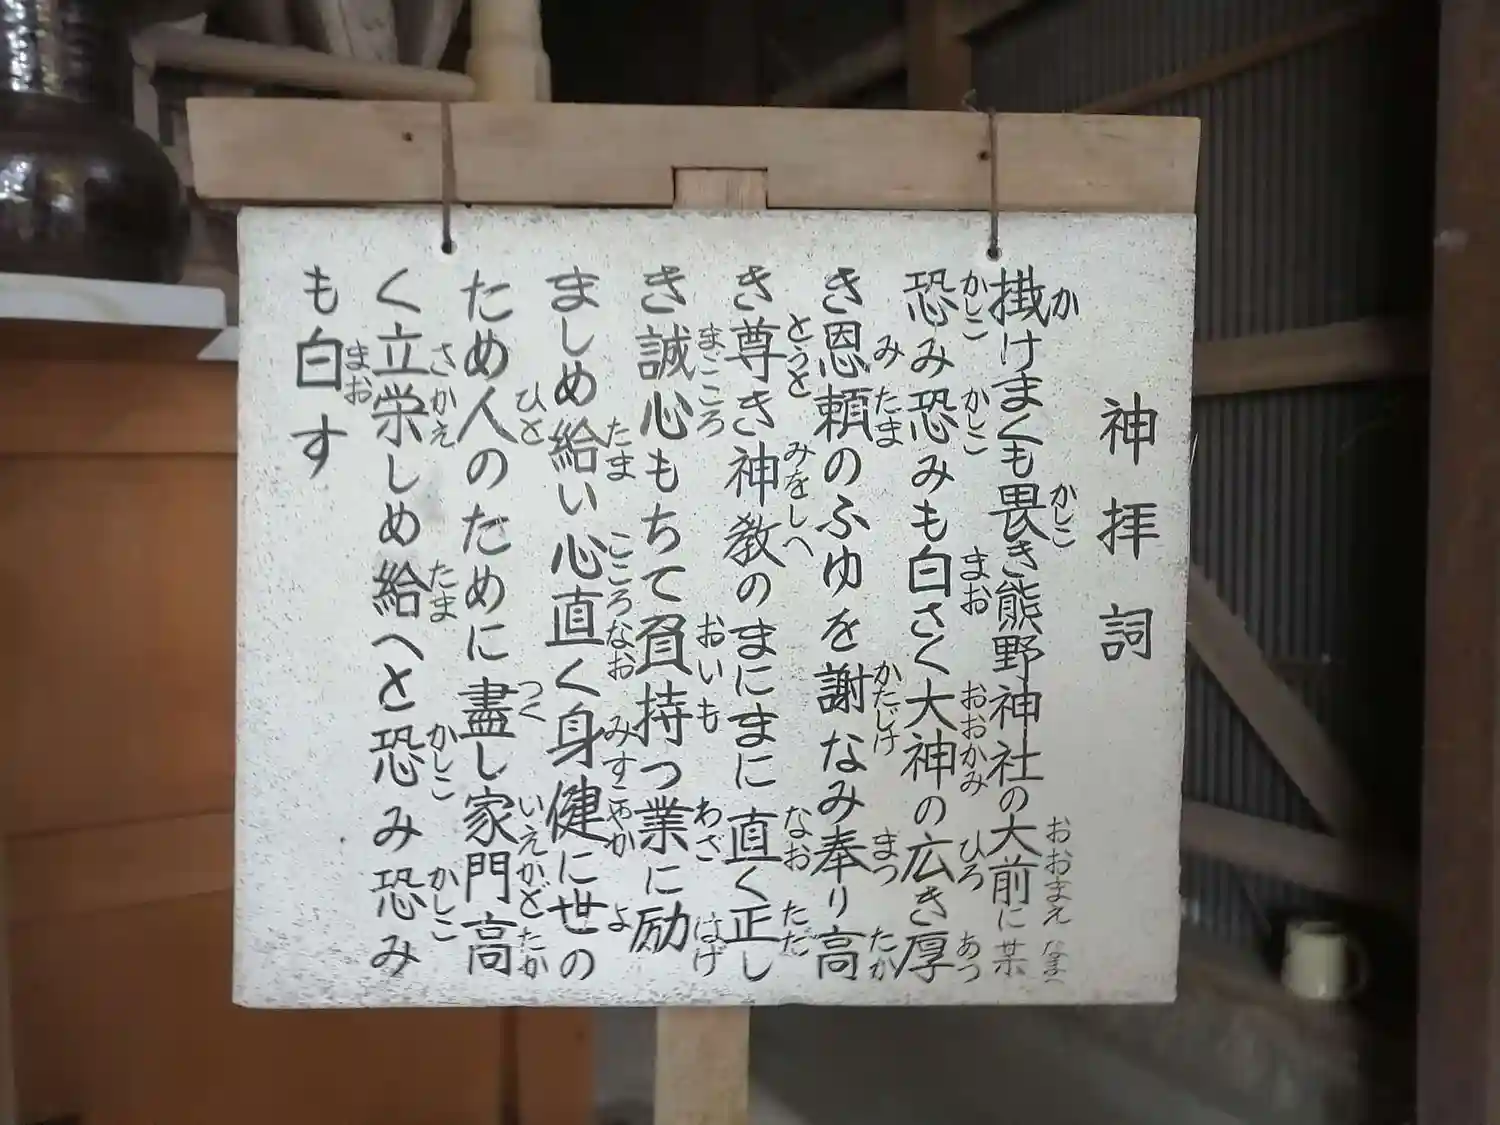 神拝詞
掛けまくも畏き熊野神社の大前に某
恐み恐みも白さく大神の広き厚
き恩頼のふゆを謝なみ奉り高
き尊き神教のまにまに直く正し
き誠心もちて負持つ業に励
ましめ給い心直く身健に世の
ため人のために盡し家門高
く立栄しめ給へと恐み恐み
も白す